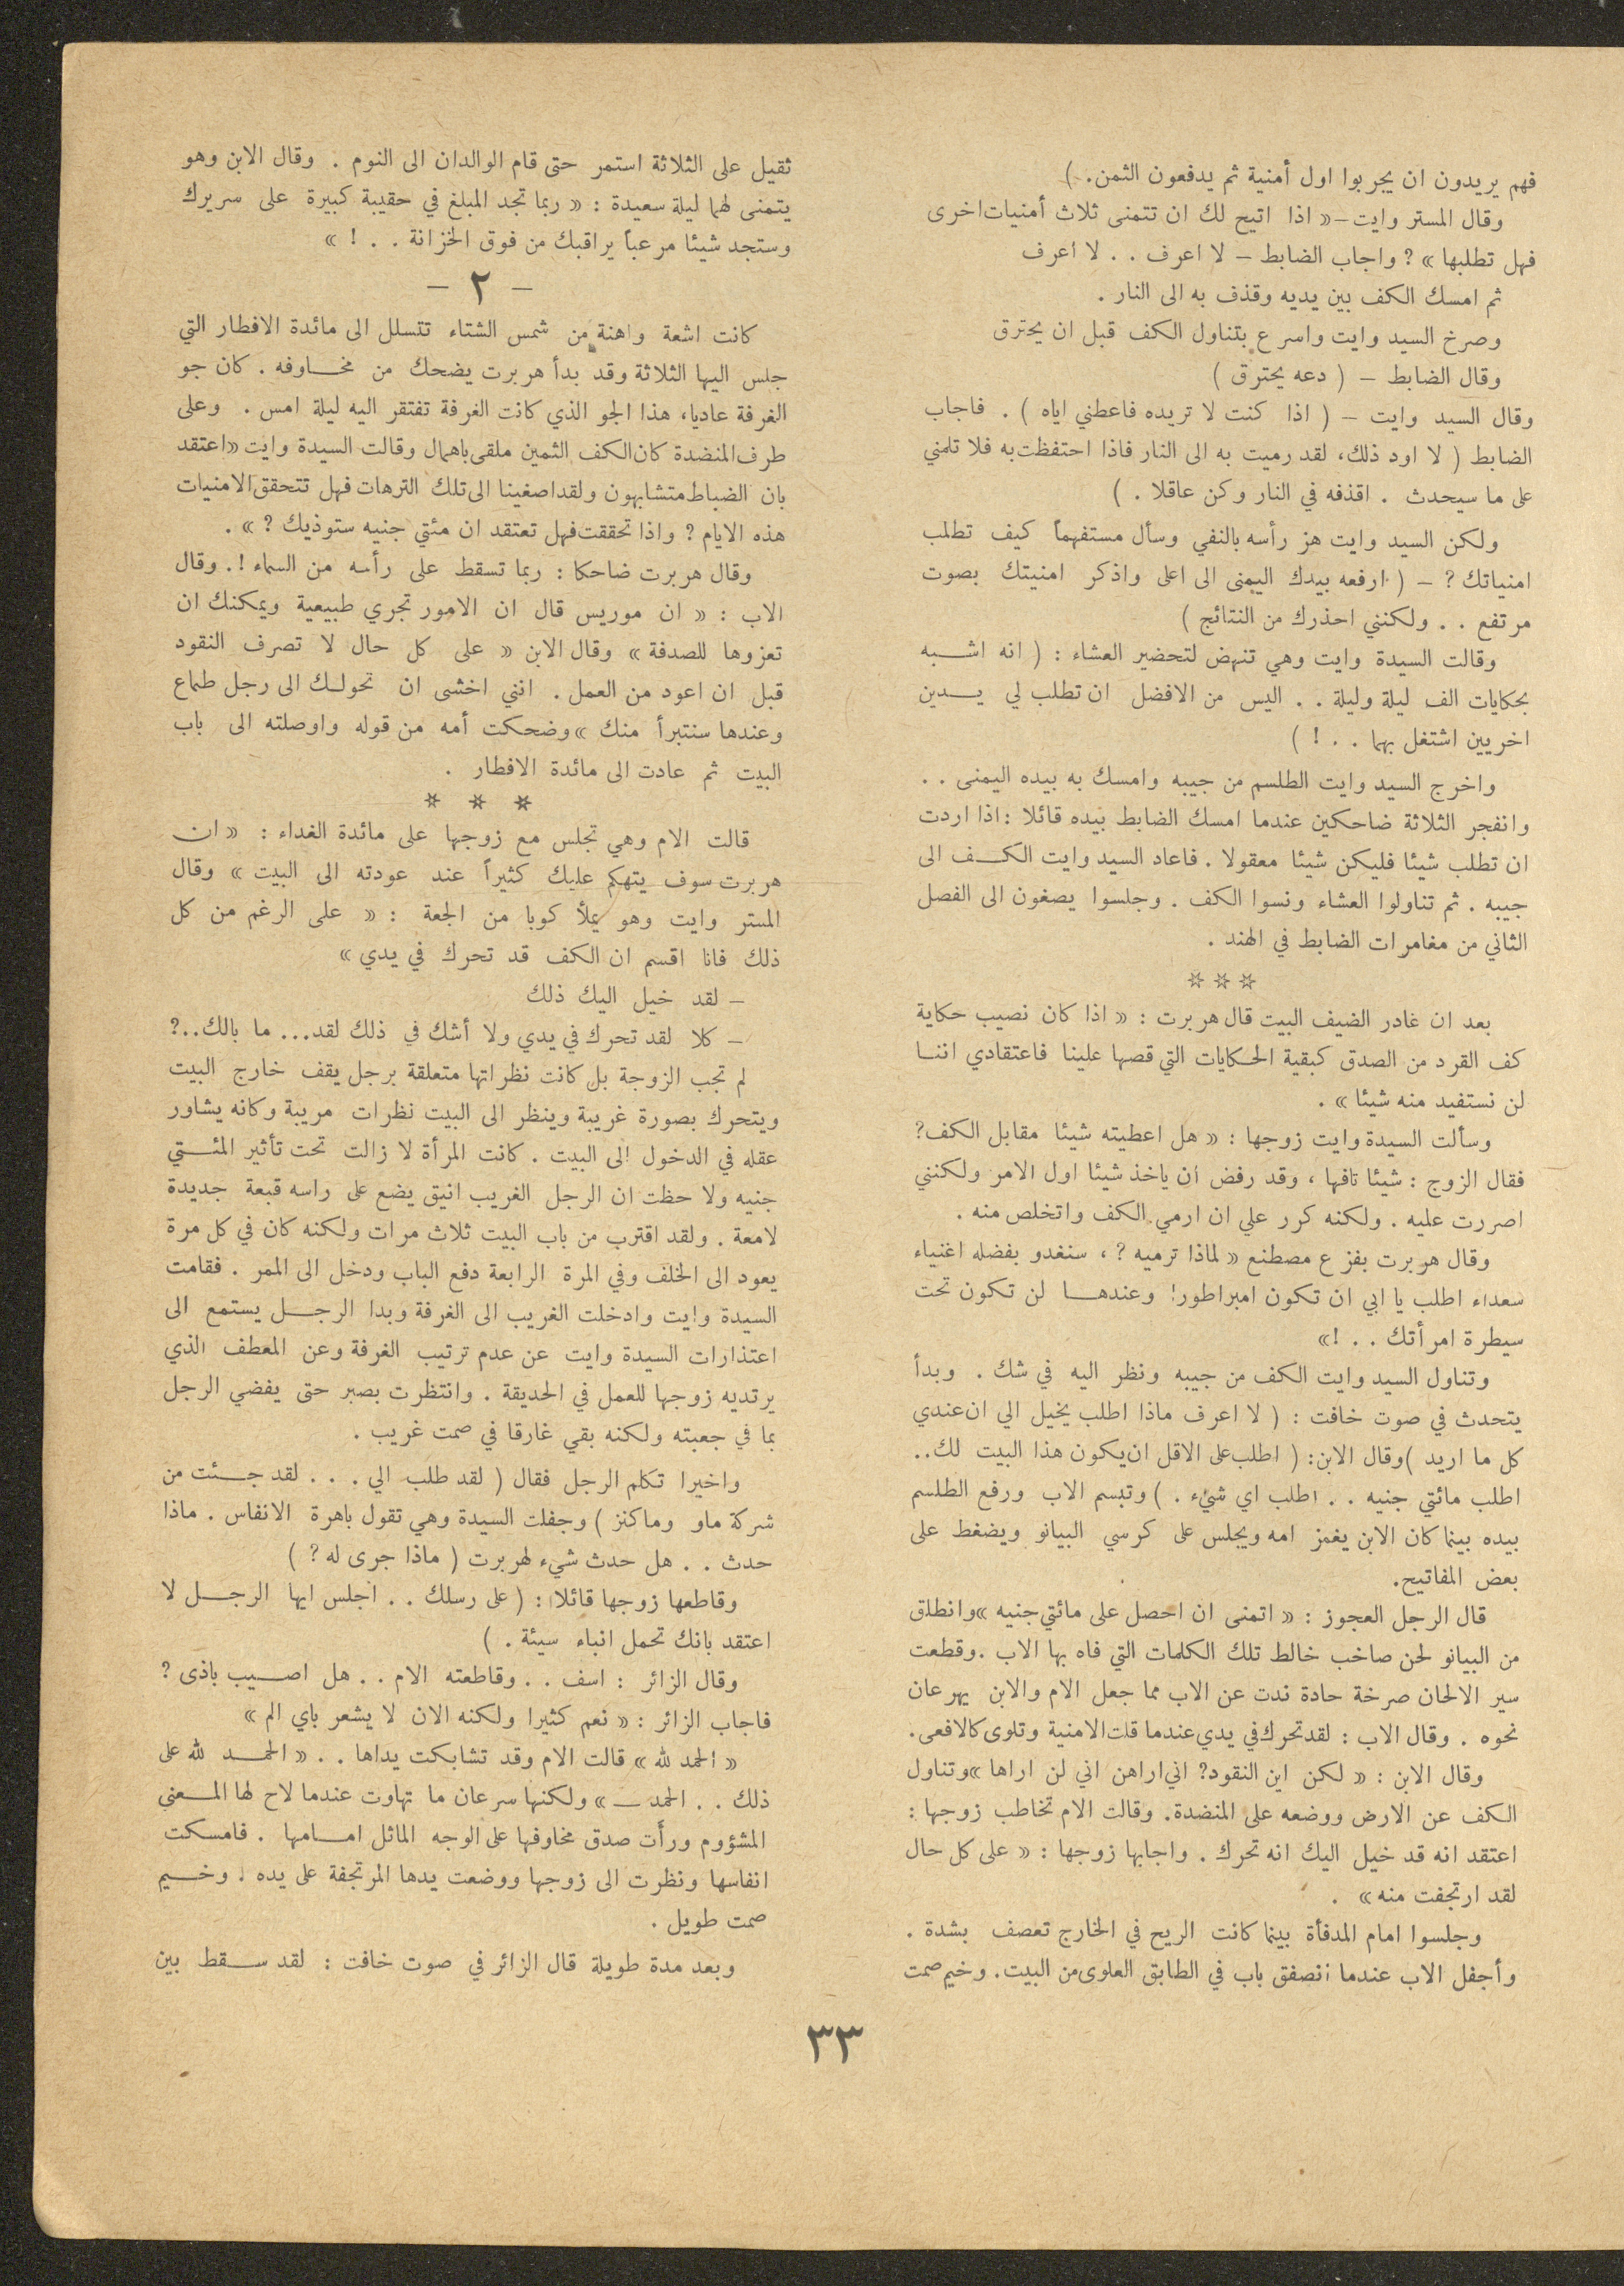 فهم يريدون ان يجربوا اول أمنية ثم يدفعون الثمن. )
وقال المستر وايت –« اذا اتيح لك ان تتمنى ثلاث أمنيات اخرى
فهل تطلبها » ? واجاب الضابط – لا اعرف . . لا اعرف
ثم امسك الكف بين يديه وقذف به الى النار .
وصرخ السيد وايت واسرع بتناول الكف قبل ان يحترق
وقال الضابط – ( دعه يحترق )
وقال السيد وايت – ( اذا كنت لا تريده فاعطني اياه ) . فاجاب
الضابط ( لا اود ذلك، لقد رميت به الى النار فاذا احتفظت به فلا تلمني
على ما سيحدث . اقذفه في النار وكن عاقلا . )
ولكن السيد وايت هز رأسه بالنفي وسأل مستفهماً كيف تطلب
امنياتك ? – ( ارفعه بيدك اليمنى الى اعلى واذكر امنيتك بصوت
مرتفع . . ولكنني احذرك من النتائج )
وقالت السيدة وايت وهي تنهض لتحضير العشاء : ( انه اشبه
بحكايات الف ليلة وليلة . . اليس من الافضل ان تطلب لي يدين
اخريين اشتغل بهما . . ! )
واخرج السيد وايت الطلسم من جيبه وامسك به بيده اليمنى . .
وانفجر الثلاثة ضاحكين عندما امسك الضابط بيده قائلا : اذا اردت
ان تطلب شيئا فليكن شيئا معقولا . فاعاد السيد وايت الكف الى
جيبه . ثم تناولوا العشاء ونسوا الكف . وجلسوا يصغون الى الفصل
الثاني من مغامرات الضابط في الهند .
☆ ☆ ☆
بعد ان غادر الضيف البيت قال هربرت : « اذا كان نصيب حكاية
كف القرد من الصدق كبقية الحكايات التي قصها علينا فاعتقادي اننا
لن نستفيد منه شيئا » .
وسألت السيدة وايت زوجها : « هل اعطيته شيئا مقابل الكف?
فقال الزوج : شيئا تافها ، وقد رفض ان ياخذ شيئا اول الامر ولكنني
اصررت عليه . ولكنه كرر علي ان ارمي الكف واتخلص منه .
وقال هربرت بفزع مصطنع « لماذا ترميه ? ، سنغدو بفضله اغنياء
سعداء اطلب يا ابي ان تكون امبراطورا وعندها لن تكون تحت
سيطرة امرأتك . . !»
وتناول السيد وايت الكف من جيبه ونظر اليه في شك . وبدأ
يتحدث في صوت خافت : ( لا اعرف ماذا اطلب يخيل الي ان عندي
كل ما اريد ) وقال الابن: ( اطلب على الاقل ان يكون هذا البيت لك..
اطلب مائتي جنيه . . اطلب اي شيء . ) وتبسم الاب ورفع الطلسم
بيده بينما كان الابن يغمز امه ويجلس على كرسي البيانو ويضغط على
بعض المفاتيح.
قال الرجل العجوز : « اتمنى ان احصل على مائتي جنيه » وانطلق
من البيانو لحن صاخب خالط تلك الكلمات التي فاه بها الاب . وقطعت
سير الالحان صرخة حادة ندت عن الاب مما جعل الام والابن يهرعان
نحوه . وقال الاب : لقد تحرك في يدي عندما قلت الامنية وتلوى كالافعى.
وقال الابن : « لكن اين النقود? اني اراهن اني لن اراها » وتناول
الكف عن الارض ووضعه على المنضدة. وقالت الام تخاطب زوجها :
اعتقد انه قد خيل اليك انه تحرك . واجابها زوجها : « على كل حال
لقد ارتجفت منه » .
وجلسوا امام المدفأة بينما كانت الريح في الخارج تعصف بشدة .
وأجفل الاب عندما انصفق باب في الطابق العلوى من البيت. وخيم صمت
ثقيل على الثلاثة استمر حتى قام الوالدان الى النوم . وقال الابن وهو
يتمنى لهما ليلة سعيدة : « ربما تجد المبلغ في حقيبة كبيرة على سريرك
وستجد شيئا مرعباً يراقبك من فوق الخزانة . . ! »
– ٢ –
كانت اشعة واهنة من شمس الشتاء تتسلل الى مائدة الافطار التي
جلس اليها الثلاثة وقد بدأ هربرت يضحك من مخاوفه . كان جو
الغرفة عاديا، هذا الجو الذي كانت الغرفة تفتقر اليه ليلة امس . وعلى
طرف المنضدة كان الكف الثمين ملقى باهمال وقالت السيدة وايت « اعتقد
بان الضباط متشابهون ولقد اصغينا الى تلك الترهات فهل تتحقق الامنيات
هذه الايام ? واذا تحققت فهل تعتقد ان مئتي جنيه ستوذيك ? » .
وقال هربرت ضاحكا : ربما تسقط على رأسه من السماء !. وقال
الاب : « ان موريس قال ان الامور تجري طبيعية ويمكنك ان
تعزوها للصدفة » وقال الابن « على كل حال لا تصرف النقود
قبل ان اعود من العمل . انني اخشى ان تحولك الى رجل طماع
وعندها سنتبرأ منك » وضحكت أمه من قوله واوصلته الى باب
البيت ثم عادت الى مائدة الافطار .
* * *
قالت الام وهي تجلس مع زوجها على مائدة الغداء : « ان
هربرت سوف يتهكم عليك كثيراً عند عودته الى البيت » وقال
المستر وايت وهو يملأ كوبا من الجعة : « على الرغم من كل
ذلك فانا اقسم ان الكف قد تحرك في يدي »
– لقد خيل اليك ذلك
– كلا لقد تحرك في يدي ولا أشك في ذلك لقد... ما بالك..?
لم تجب الزوجة بل كانت نظراتها متعلقة برجل يقف خارج البيت
ويتحرك بصورة غريبة وينظر الى البيت نظرات مريبة وكانه يشاور
عقله في الدخول الى البيت . كانت المرأة لا زالت تحت تأثير المئتي
جنيه ولا حظت ان الرجل الغريب انيق يضع على راسه قبعة جديدة
لامعة . ولقد اقترب من باب البيت ثلاث مرات ولكنه كان في كل مرة
يعود الى الخلف وفي المرة الرابعة دفع الباب ودخل الى الممر . فقامت
السيدة وايت وادخلت الغريب الى الغرفة وبدا الرجل يستمع الى
اعتذارات السيدة وايت عن عدم ترتيب الغرفة وعن المعطف الذي
يرتديه زوجها للعمل في الحديقة . وانتظرت بصبر حتى يفضي الرجل
بما في جعبته ولكنه بقي غارقا في صمت غريب .
واخيرا تكلم الرجل فقال ( لقد طلب الي . . . لقد جئت من
شركة ماو وماكنز ) وجفلت السيدة وهي تقول باهرة الانفاس . ماذا
حدث . . هل حدث شيء لهربرت ( ماذا جرى له ? )
وقاطعها زوجها قائلا : ( على رسلك . . اجلس ايها الرجل لا
اعتقد بانك تحمل انباء سيئة . )
وقال الزائر : اسف . . وقاطعته الام . . هل اصيب باذى ?
فاجاب الزائر : « نعم كثيرا ولكنه الان لا يشعر باي الم »
« الحمد لله » قالت الام وقد تشابكت يداها . . « الحمد لله على
ذلك . . الحمد — » ولكنها سرعان ما تهاوت عندما لاح لها المعنى
المشؤوم ورأت صدق مخاوفها على الوجه الماثل امامها . فامسكت
انفاسها ونظرت الى زوجها ووضعت يدها المرتجفة على يده . وخيم
صمت طويل .
وبعد مدة طويلة قال الزائر في صوت خافت : لقد سقط بين
٣٣